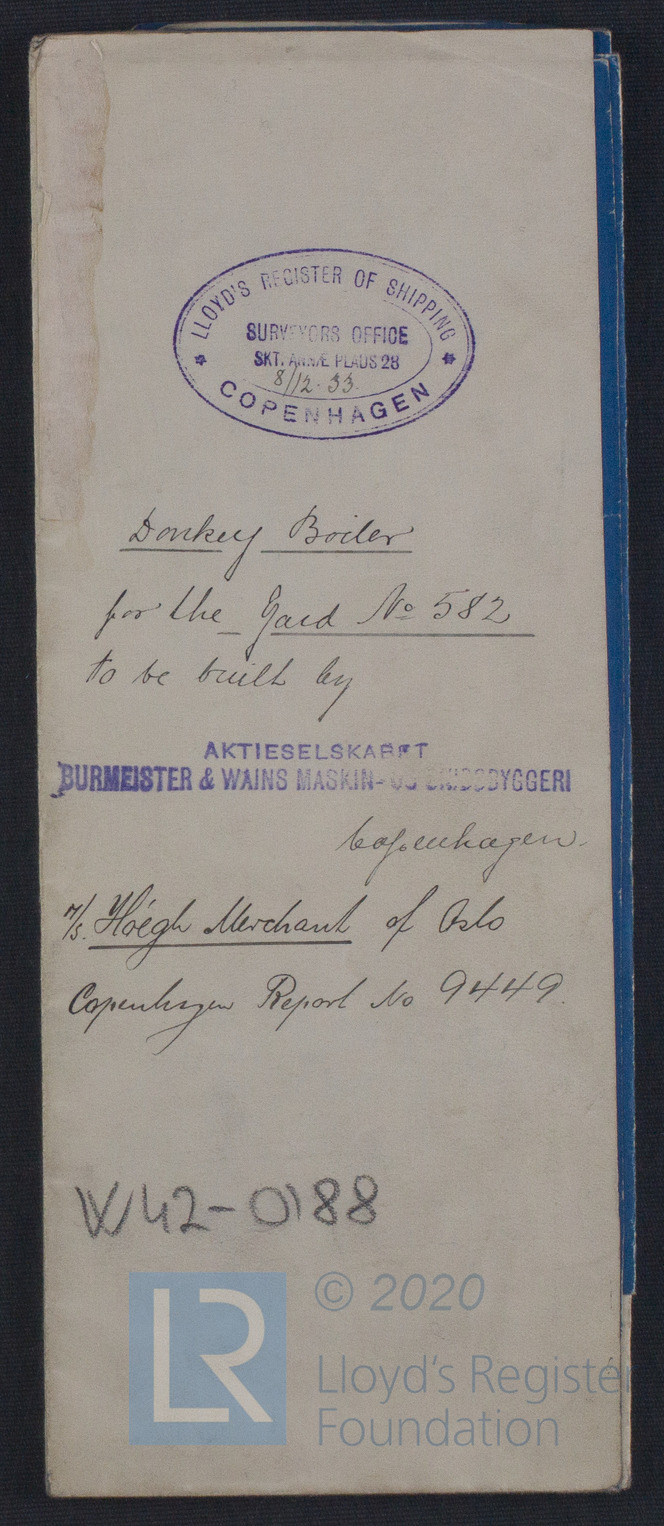 LLOYD'S REGISTER OF SHIPPING
SURVEYORS OFFICE
SKT. ANNÆ PLADS 28
8/12-33.
COPENHAGEN
Donkey Boiler
for the Yard No 582
to be built by
AKTIESELSKABET
BURMEISTER & WAINS MASKIN- OG SKIBSBYGGERI
Copenhagen.
M/S. Höegh Merchant of Oslo
Copenhagen Report No 9449.
W42-0188
LR
© 2020
Lloyd's Register
Foundation